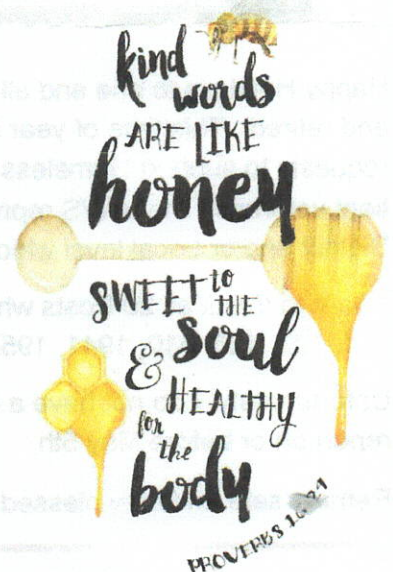 kind
words
ARE LIKE
honey
SWEET to
THE
soul
& HEALTHY
for
the
body
PROVERBS 16:24